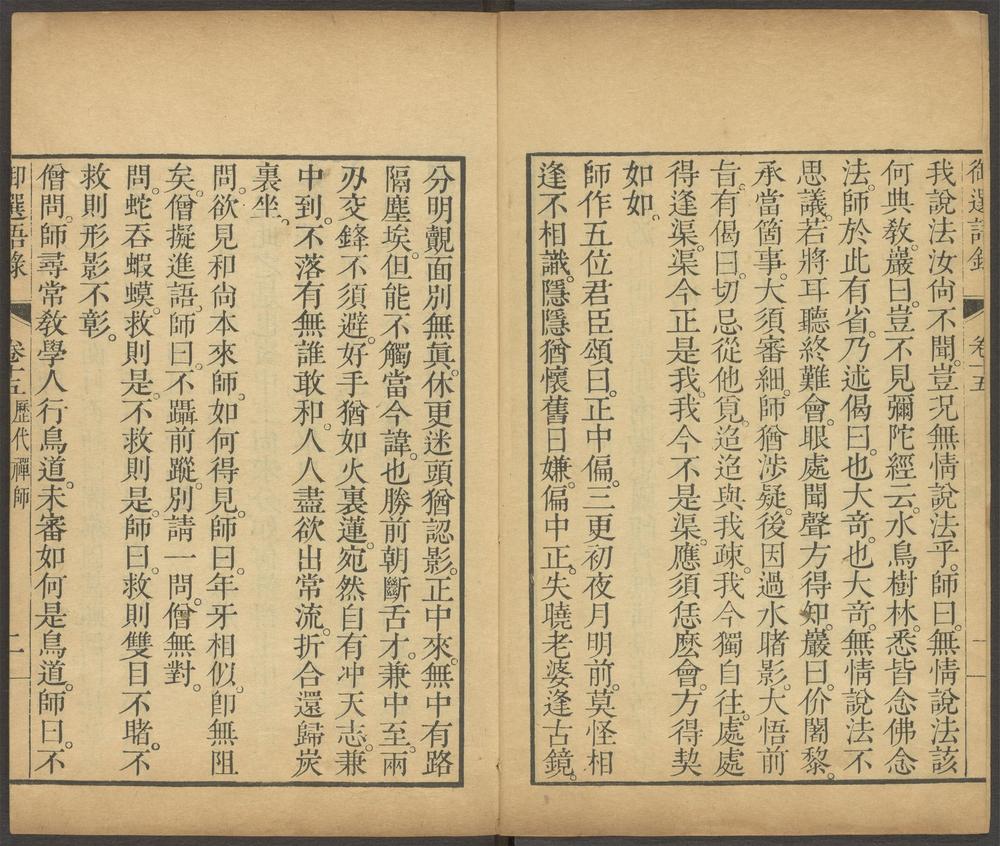 御選語錄 卷十五
我說法汝尙不聞。豈況無情說法乎。師曰。無情說法該
何典敎。巖曰。豈不見彌陀經云。水鳥樹林。悉皆念佛念
法。師於此有省。乃述偈曰。也大奇。也大奇。無情說法不
思議。若將耳聽終難會。眼處聞聲方得知。巖曰。价闍黎。
承當箇事。大須審細。師猶涉疑。後因過水睹影。大悟前
旨。有偈曰。切忌從他覓。迢迢與我疎。我今獨自往。處處
得逢渠。渠今正是我。我今不是渠。應須恁麽會。方得契
如如。
師作五位君臣頌曰。正中偏。三更初夜月明前。莫怪相
逢不相識。隱隱猶懷舊日嫌。偏中正。失曉老婆逢古鏡。
分明覿面別無眞。休更迷頭猶認影。正中來。無中有路
隔塵埃。但能不觸當今諱。也勝前朝斷舌才。兼中至。兩
刃交鋒不須避。好手猶如火裏蓮。宛然自有冲天志。兼
中到。不落有無誰敢和。人人盡欲出常流。折合還歸炭
裏坐。
問。欲見和尙本來師。如何得見。師曰。年牙相似。卽無阻
矣。僧擬進語。師曰。不躡前蹤。別請一問。僧無對。
問。蛇吞蝦蟆。救則是。不救則是。師曰。救則雙目不睹。不
救則形影不彰。
僧問。師尋常敎學人行鳥道。未審如何是鳥道。師曰。不
御選語錄 卷十五 歷代禪師 二